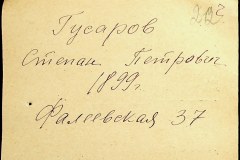 22с
Гусаров
Степан Петрович
1899г
Фалеевская 37